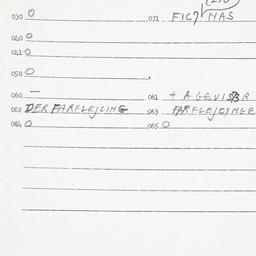 030 0 031 FIC? MAS
040 0
041 0
050 0
060 — 061 + A GEVISER
062 DER FARFLEJCING 063 FARFLEJCINGE
064 0 065 0